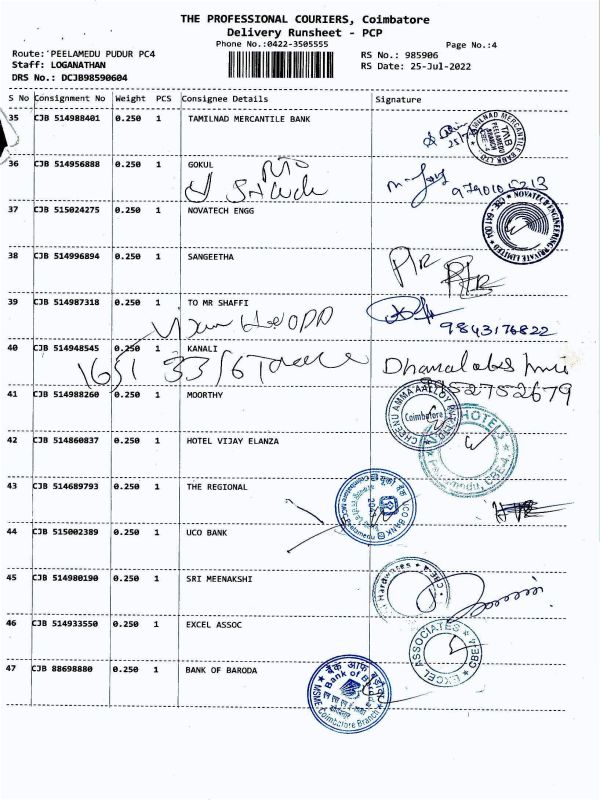 THE PROFESSIONAL COURIERS, Coimbatore
Delivery Runsheet - PCP
Phone No.:0422-3505555
Page No.:4
Route: PEELAMEDU PUDUR PC4
RS No.: 985906
Staff: LOGANATHAN
RS Date: 25-Jul-2022
DRS No.: DCJB98590604
S No Consignment No Weight PCS Consignee Details Signature
35 CJB 514988401 0.250 1 TAMILNAD MERCANTILE BANK
TAMILNAD MERCANTILE BANK LTD
TMB
PEELAMEDU
36 CJB 514956888 0.250 1 GOKUL
37 CJB 515024275 0.250 1 NOVATECH ENGG
38 CJB 514996894 0.250 1 SANGEETHA
39 CJB 514987318 0.250 1 TO MR SHAFFI
9843176822
40 CJB 514948545 0.250 1 KANALI
9952752679
41 CJB 514988260 0.250 1 MOORTHY
Coimbatore
HOTELS
42 CJB 514860837 0.250 1 HOTEL VIJAY ELANZA
43 CJB 514689793 0.250 1 THE REGIONAL
UCO BANK
44 CJB 515002389 0.250 1 UCO BANK
45 CJB 514980190 0.250 1 SRI MEENAKSHI
Hardwares
46 CJB 514933550 0.250 1 EXCEL ASSOC
EXCEL ASSOCIATES
47 CJB 88698880 0.250 1 BANK OF BARODA
बैंक ऑफ बड़ौदा
Bank of Baroda
MSME Coimbatore Branch